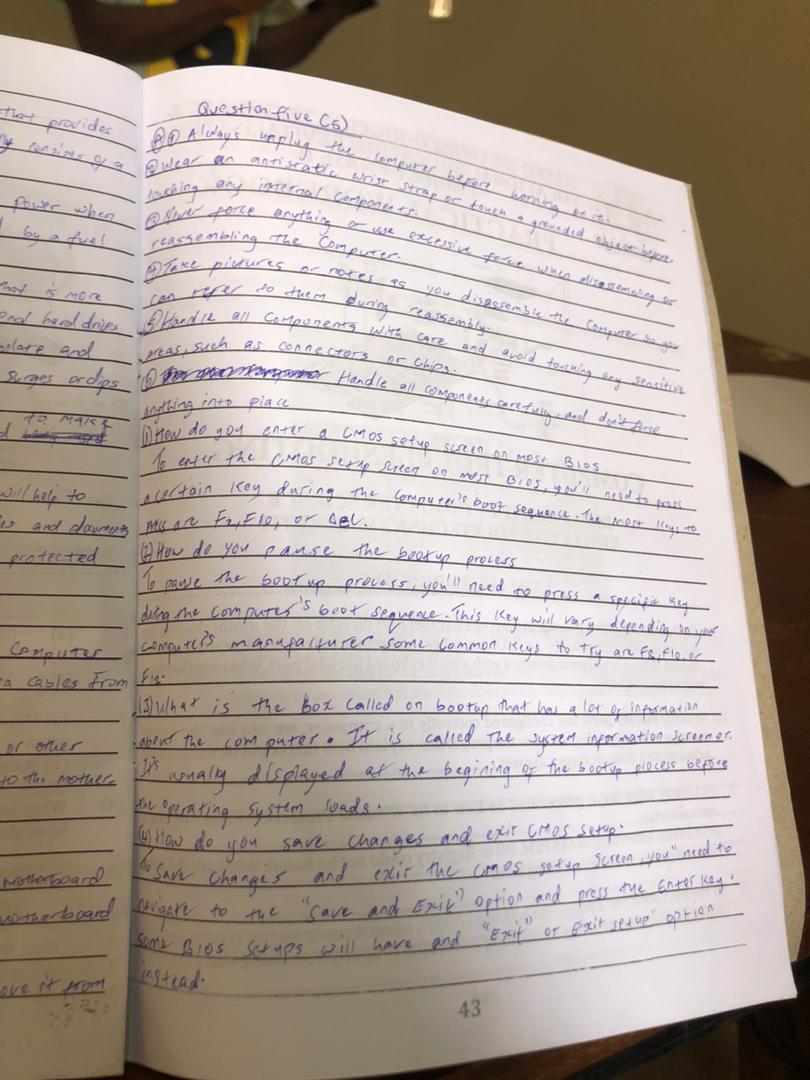 that provides
ly consists of a
power when
by a fuel
that is more
and hard drives
plate and
surges or dips
to make
will help to
es and documents
protected
Computer
ta cables From
or other
to the mother
Motherboard
motherboard
ove it from
Question five (5)
(A) (1) Always unplug the computer before working on it.
(2) Wear an antistatic wrist strap or touch a grounded object before
touching any internal components.
(3) Never force anything or use excessive force when disassembling or
reassembling the Computer.
(4) Take pictures or notes as you disassemble the computer so you
can refer to them during reassembly.
(5) Handle all Components with care and avoid touching any sensitive
areas, such as connectors or chips.
(6) Handle all components carefully, and don't force
anything into place
(1) How do you enter a CMOS setup screen on most BIOS
To enter the CMOS setup screen on most BIOS, you'll need to press
a certain key during the computer's boot sequence. The most keys to
this are F2, F10, or DEL.
(2) How do you pause the bootup process
To pause the bootup process, you'll need to press a specific key
during the computer's boot sequence. This key will vary depending on your
computer's manufacturer some common keys to try are F8, F10, or
F12.
(3) What is the box called on bootup that has a lot of information
about the computer. It is called the system information screen or.
It's usually displayed at the begining of the bootup process before
the operating system loads.
(4) How do you save changes and exit CMOS setup.
To save changes and exit the CMOS setup screen, you" need to
navigate to the "Save and Exit") option and press the Enter key.
some BIOS setups will have and "Exit" or Exit setup" option
instead.
43